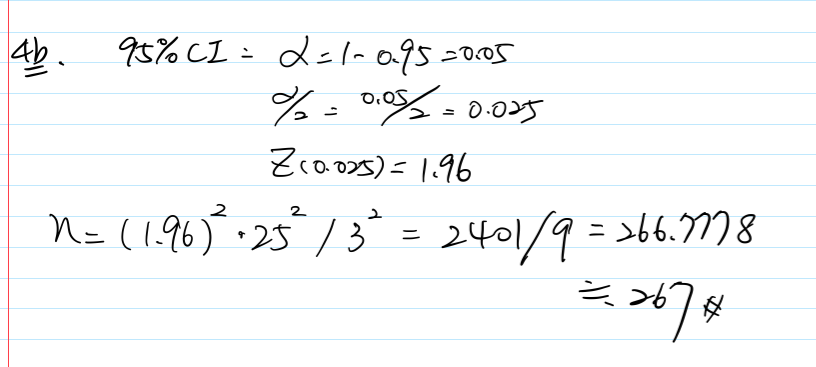 4b. 95% CI = α = 1 - 0.95 = 0.05
α/2 = 0.05/2 = 0.025
Z(0.025) = 1.96
n = (1.96)² · 25² / 3² = 2401/9 = 266.7778
≒ 267 #